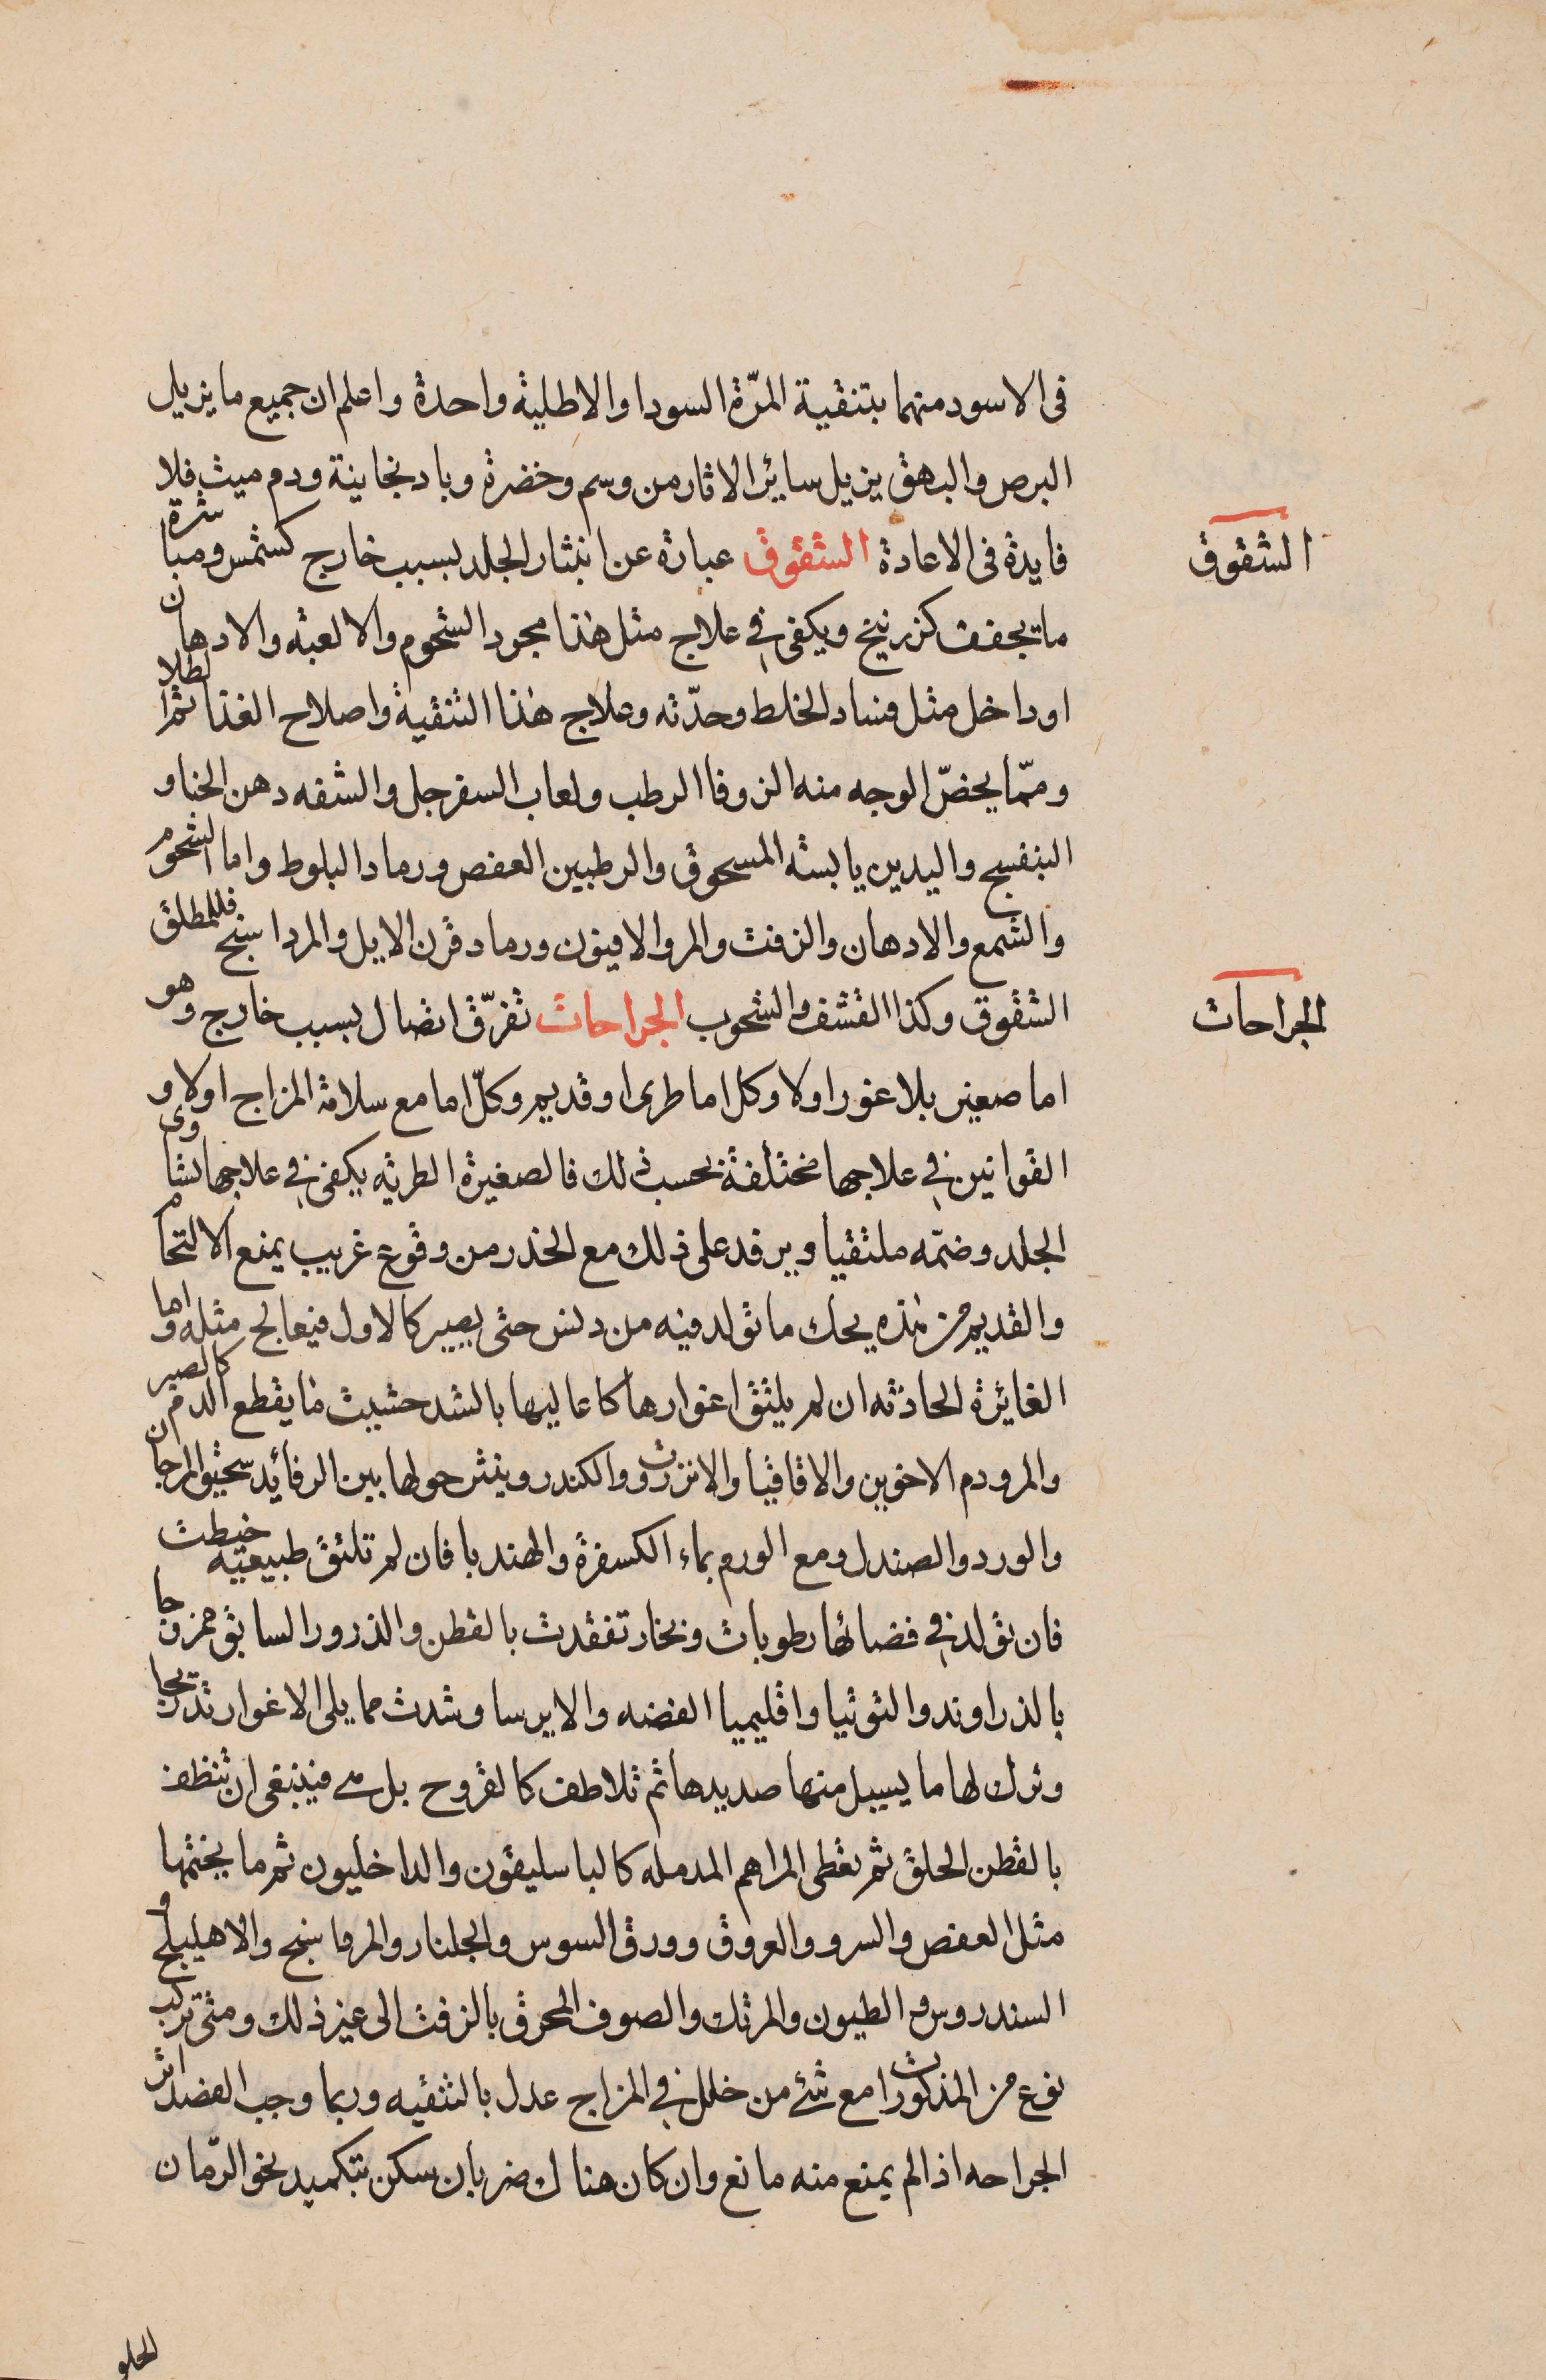 فى الاسود منهما بتنقية المرّة السودا والاطلية واحدة واعلم ان جميع ما يزيل
البرص والبهق يزيل سائر الاثار من وسم وخضرة وبادنجانية ودم ميت فلا
فايدة فى الاعادة الشقوق عبارة عن انتثار الجلد بسبب خارج كشمس ومباشرة
الشقوق
ما يجفف كزرنيخ ويكفى في علاج مثل هذا مجرد الشحوم والالعبه والادهان
او داخل مثل فساد الخلط وحدّته وعلاج هذا التنقية واصلاح الغذا ثم الطلا
وممّا يخصّ الوجه منه الزوفا الرطب ولعاب السفرجل والشفه دهن الحنا و
البنفسج واليدين يابسته المسحوق والرطبين العفص ورماد البلوط واما الشحوم
والشمع والادهان والزفت والمر والافيون ورماد قرن الايل والمرداسنج فللمطلق
الشقوق وكذا القشف والشحوب الجراحات تفرّق اتصال بسبب خارج وهو
الجراحات
اما صغير بلا غور اولا وكل اما طرى او قديم وكلّ اما مع سلامة المزاج اولا و
القوانين في علاجها مختلفة بحسب ذلك فالصغيرة الطريه يكفى في علاجها تساوى
الجلد وضمّه ملتقيا ويرفد على ذلك مع الحذر من وقوع غريب يمنع الالتحام
والقديم من هذه يحك ما تولد فيه من دنس حتى يصير كالاول فيعالج مثله واما
الغائرة الحادثه ان لم يلتق اغوارها كاعاليها بالشد حشيت ما يقطع الدم كالصبر
والمر ودم الاخوين والاقاقيا والانزروت والكندر وينثر حولها بين الرفائد سحيق المرجان
والورد والصندل ومع الورم بماء الكسفرة والهندبا فان لم تلتق طبيعية خيطت
فان تولد في فضائها رطوبات وبخار تفقدت بالقطن والذرور السابق ممزوجا
بالذراوند والتوتيا واقليميا الفضه والايرسا وشدت مما يلى الاغوار تدريجا
وترك لها ما يسيل منها صديدها ثم تلاطف كالقروح بل هي فينبغى ان تنظف
بالقطن الحلق ثم تغطى المراهم المدمله كالباسليقون والداخليون ثم ما يختمها
مثل العفص والسرو والعروق وورق السوس والجلنار والمرماسنج والاهليلج و
السندروس والطيون والمرتك والصوف المحرق بالزفت الى غير ذلك ومتى تركب
نوع من المذكورات مع شئ من خلل في المزاج عدل بالتنقيه وربما وجب الفصد اثر
الجراحه اذا لم يمنع منه مانع وان كان هناك ضربان سكن بتكميد نحو الرّمان
الحلو